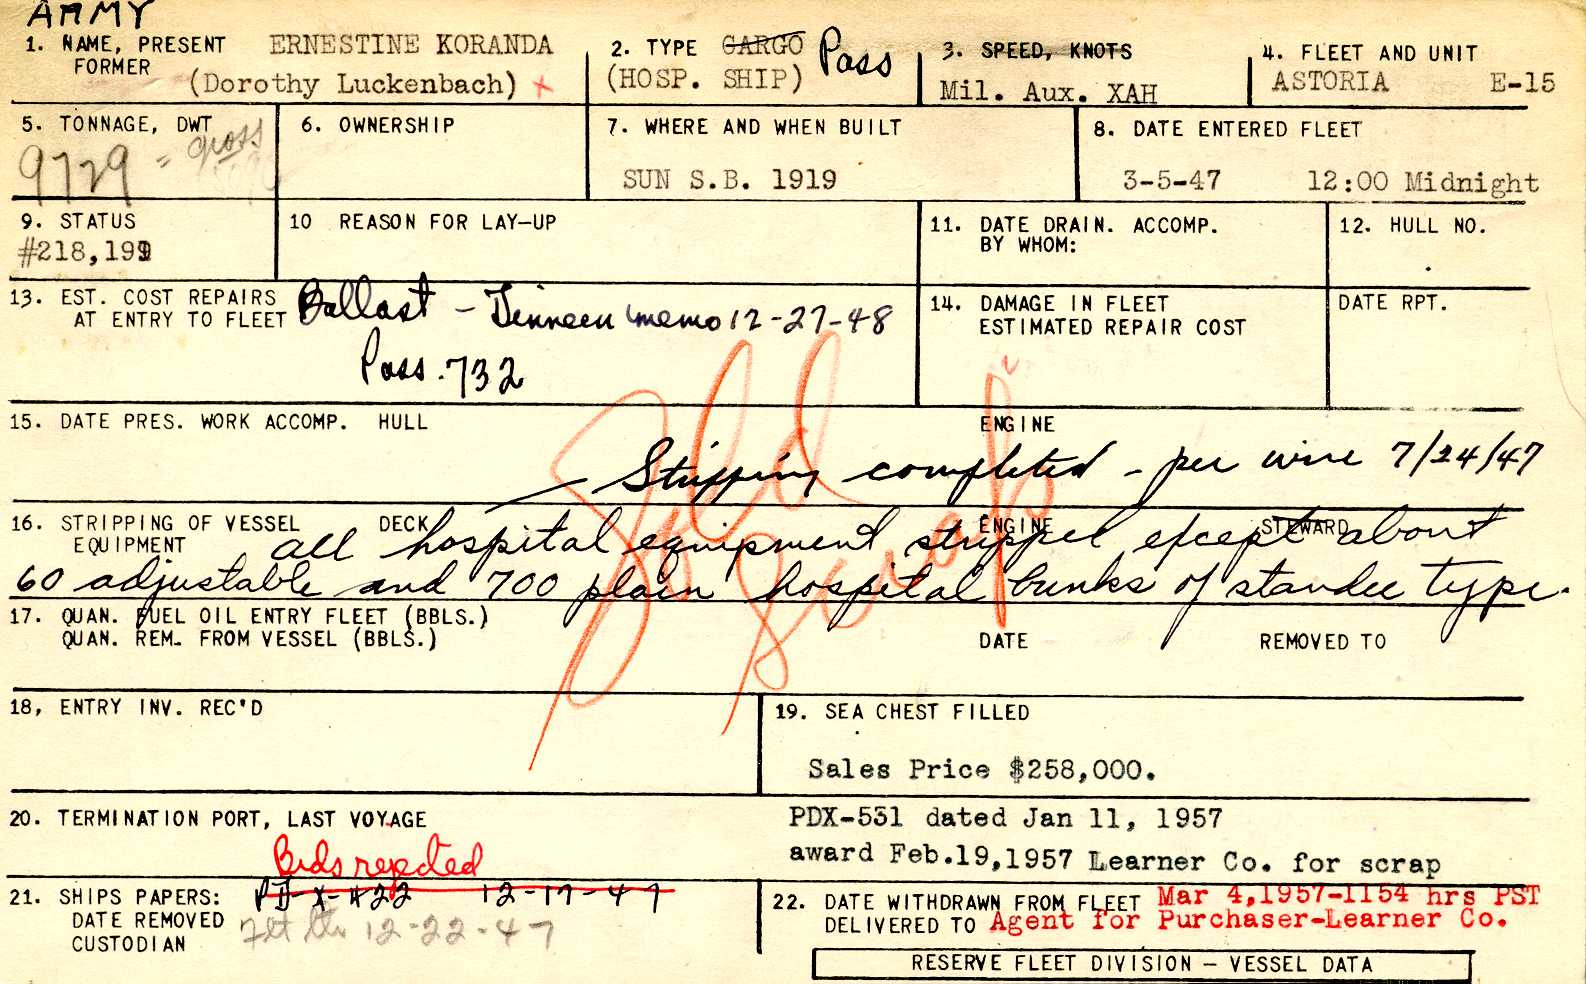 ARMY
1. NAME, PRESENT ERNESTINE KORANDA
FORMER (Dorothy Luckenbach) x
2. TYPE CARGO Pass
(HOSP. SHIP)
3. SPEED, KNOTS
Mil. Aux. XAH
4. FLEET AND UNIT
ASTORIA E-15
5. TONNAGE, DWT
9729 = gross
6. OWNERSHIP
7. WHERE AND WHEN BUILT
SUN S.B. 1919
8. DATE ENTERED FLEET
3-5-47 12:00 Midnight
9. STATUS
#218,199
10 REASON FOR LAY-UP
11. DATE DRAIN. ACCOMP.
BY WHOM:
12. HULL NO.
13. EST. COST REPAIRS
AT ENTRY TO FLEET
Ballast - memo 12-27-48
Pass. 732
14. DAMAGE IN FLEET
ESTIMATED REPAIR COST
DATE RPT.
15. DATE PRES. WORK ACCOMP. HULL ENGINE
Stripping completed - per wire 7/24/47
16. STRIPPING OF VESSEL DECK ENGINE STEWARD
EQUIPMENT
all hospital equipment stripped except about
60 adjustable and 700 plain hospital bunks of standee type.
Sold
for Scrap
17. QUAN. FUEL OIL ENTRY FLEET (BBLS.)
QUAN. REM. FROM VESSEL (BBLS.) DATE REMOVED TO
18, ENTRY INV. REC'D
19. SEA CHEST FILLED
Sales Price $258,000.
20. TERMINATION PORT, LAST VOYAGE
Bids rejected
PDX-531 dated Jan 11, 1957
award Feb.19,1957 Learner Co. for scrap
21. SHIPS PAPERS: PD-X-#22 12-17-47
DATE REMOVED 12-22-47
CUSTODIAN
22. DATE WITHDRAWN FROM FLEET Mar 4,1957-1154 hrs PST
DELIVERED TO Agent for Purchaser-Learner Co.
RESERVE FLEET DIVISION – VESSEL DATA